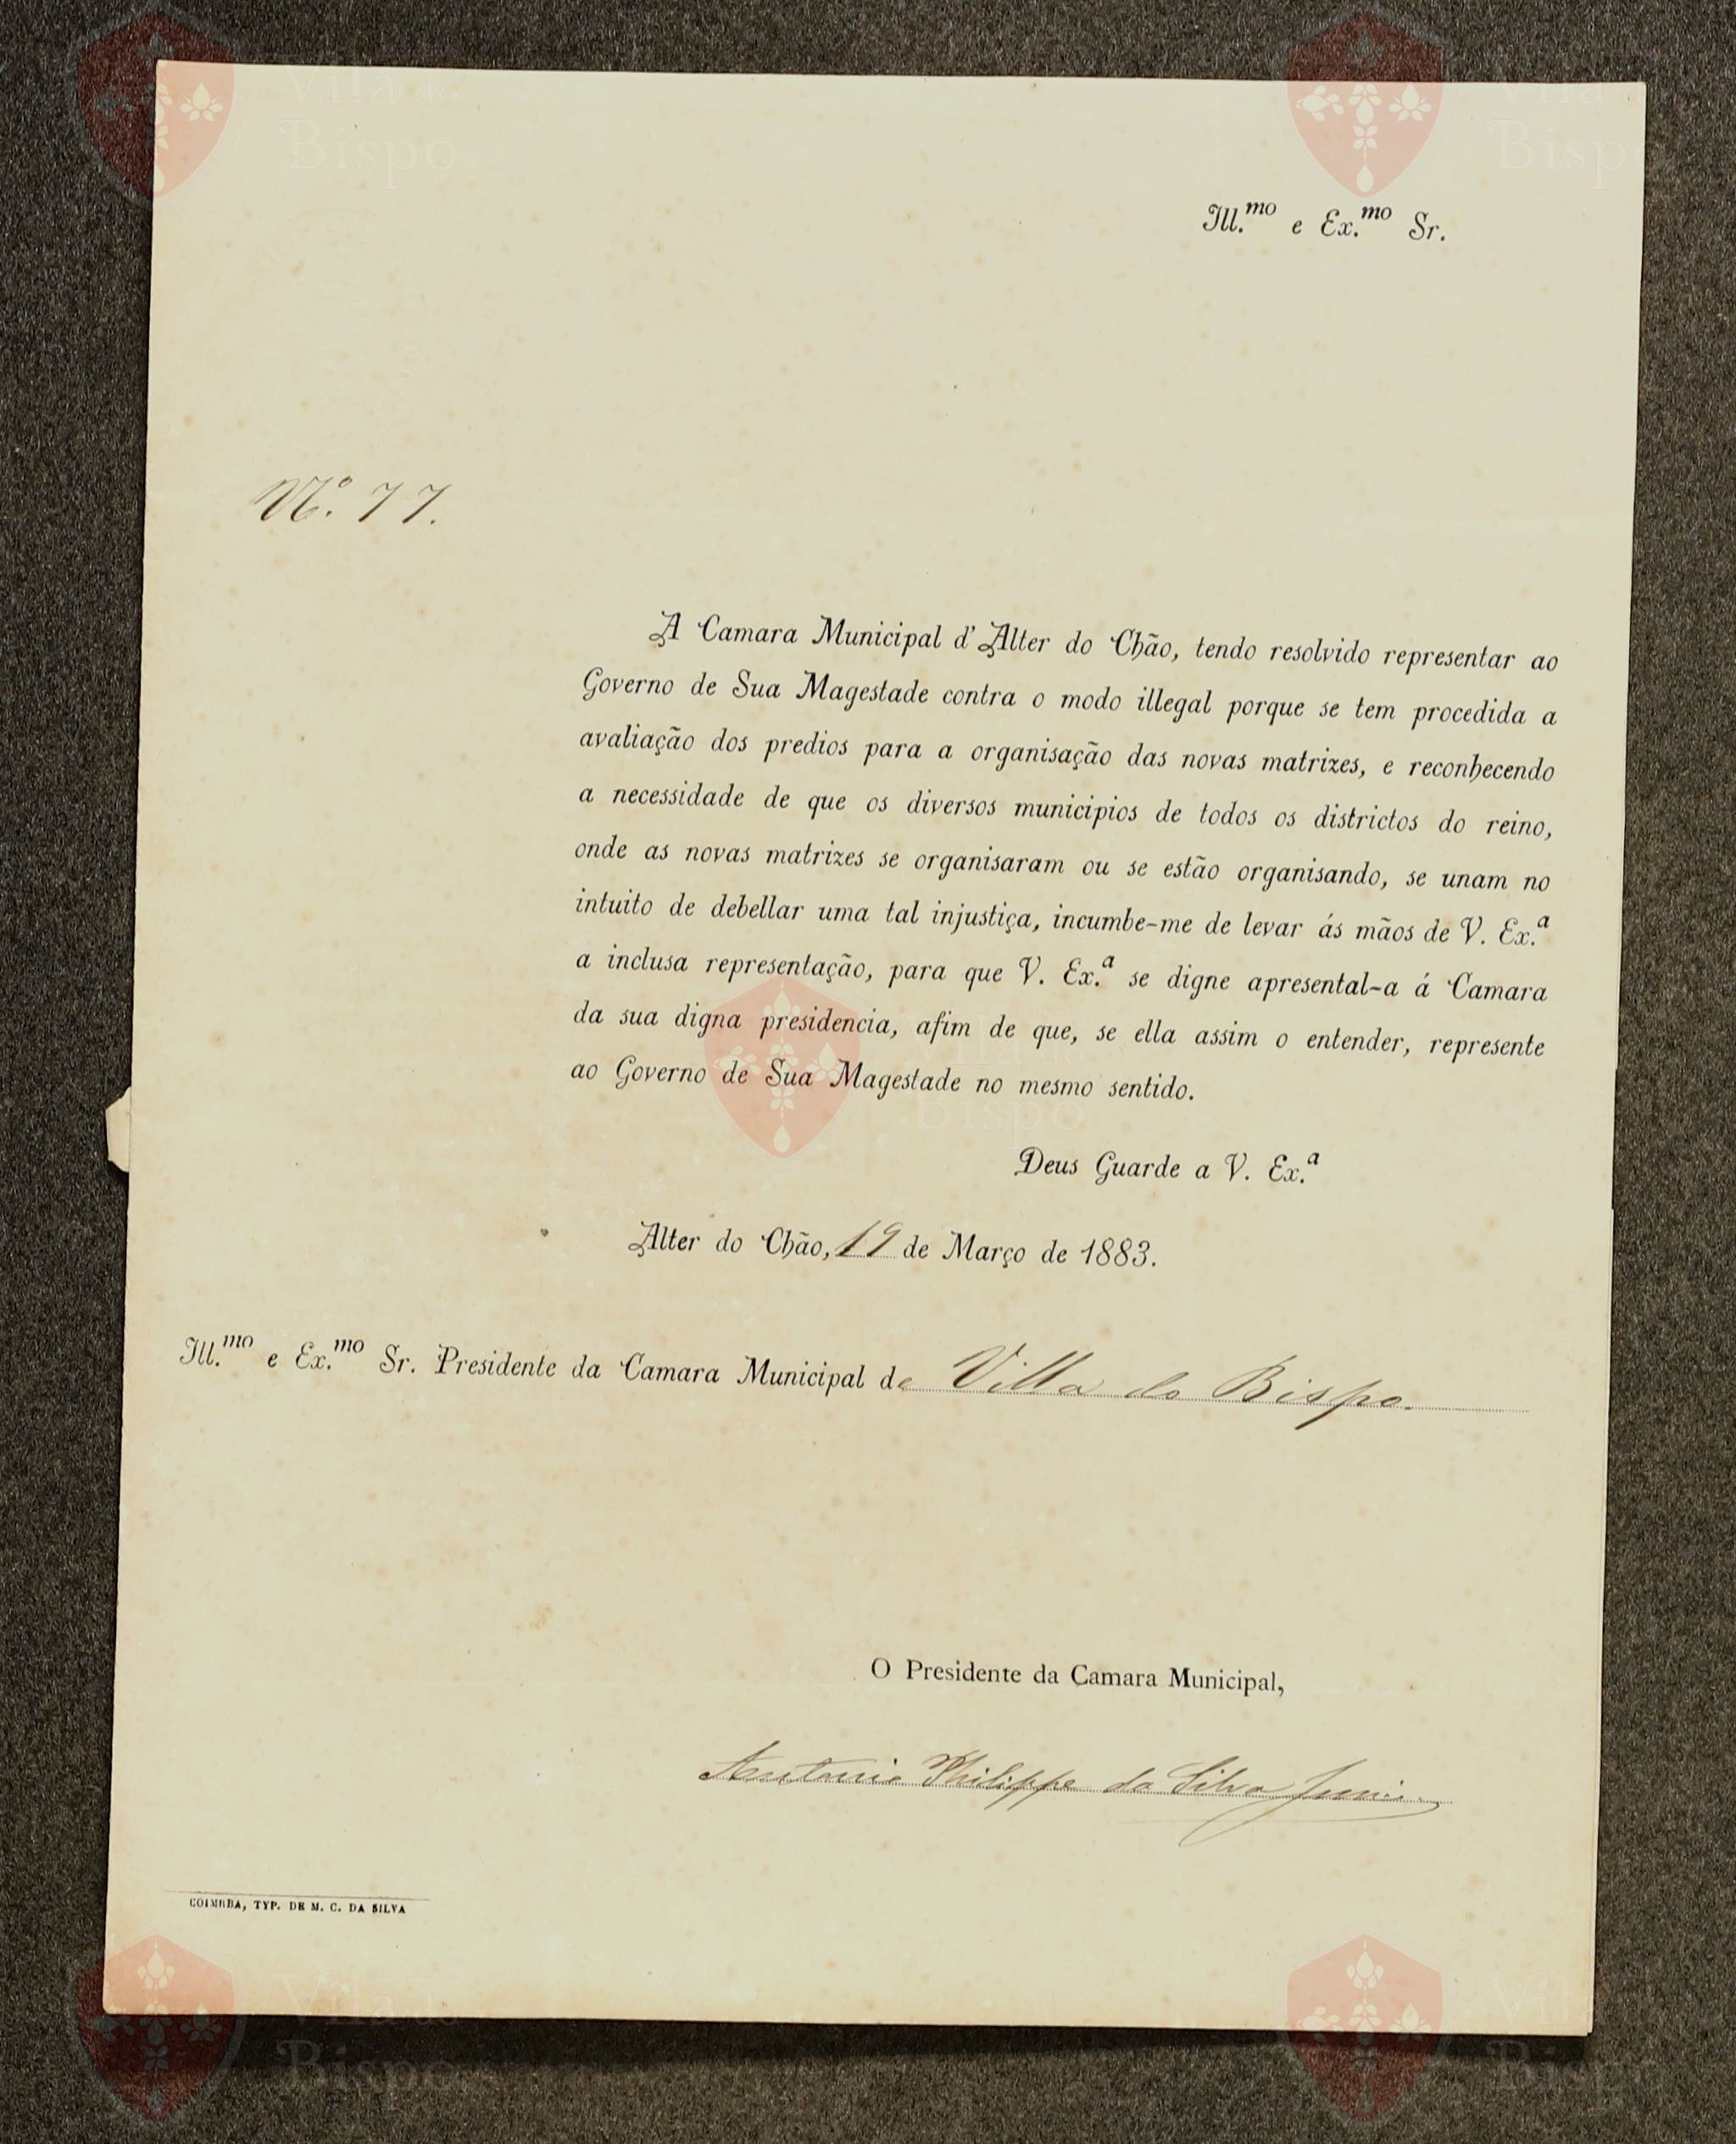 Ill.mo e Ex.mo Sr.
N.º 77.
A Camara Municipal d'Alter do Chão, tendo resolvido representar ao
Governo de Sua Magestade contra o modo illegal porque se tem procedida a
avaliação dos predios para a organisação das novas matrizes, e reconhecendo
a necessidade de que os diversos municipios de todos os districtos do reino,
onde as novas matrizes se organisaram ou se estão organisando, se unam no
intuito de debellar uma tal injustiça, incumbe-me de levar ás mãos de V. Ex.ª
a inclusa representação, para que V. Ex.ª se digne apresental-a á Camara
da sua digna presidencia, afim de que, se ella assim o entender, represente
ao Governo de Sua Magestade no mesmo sentido.
Deus Guarde a V. Ex.ª
Alter do Chão, 19 de Março de 1883.
Ill.mo e Ex.mo Sr. Presidente da Camara Municipal de Villa do Bispo.
O Presidente da Camara Municipal,
Antonio Philippe da Silva
COIMBRA, TYP. DE M. C. DA SILVA
Vila do
Bispo
Vila
Bispo
Bispo
Vila do
Bispo
Vil
Bisp